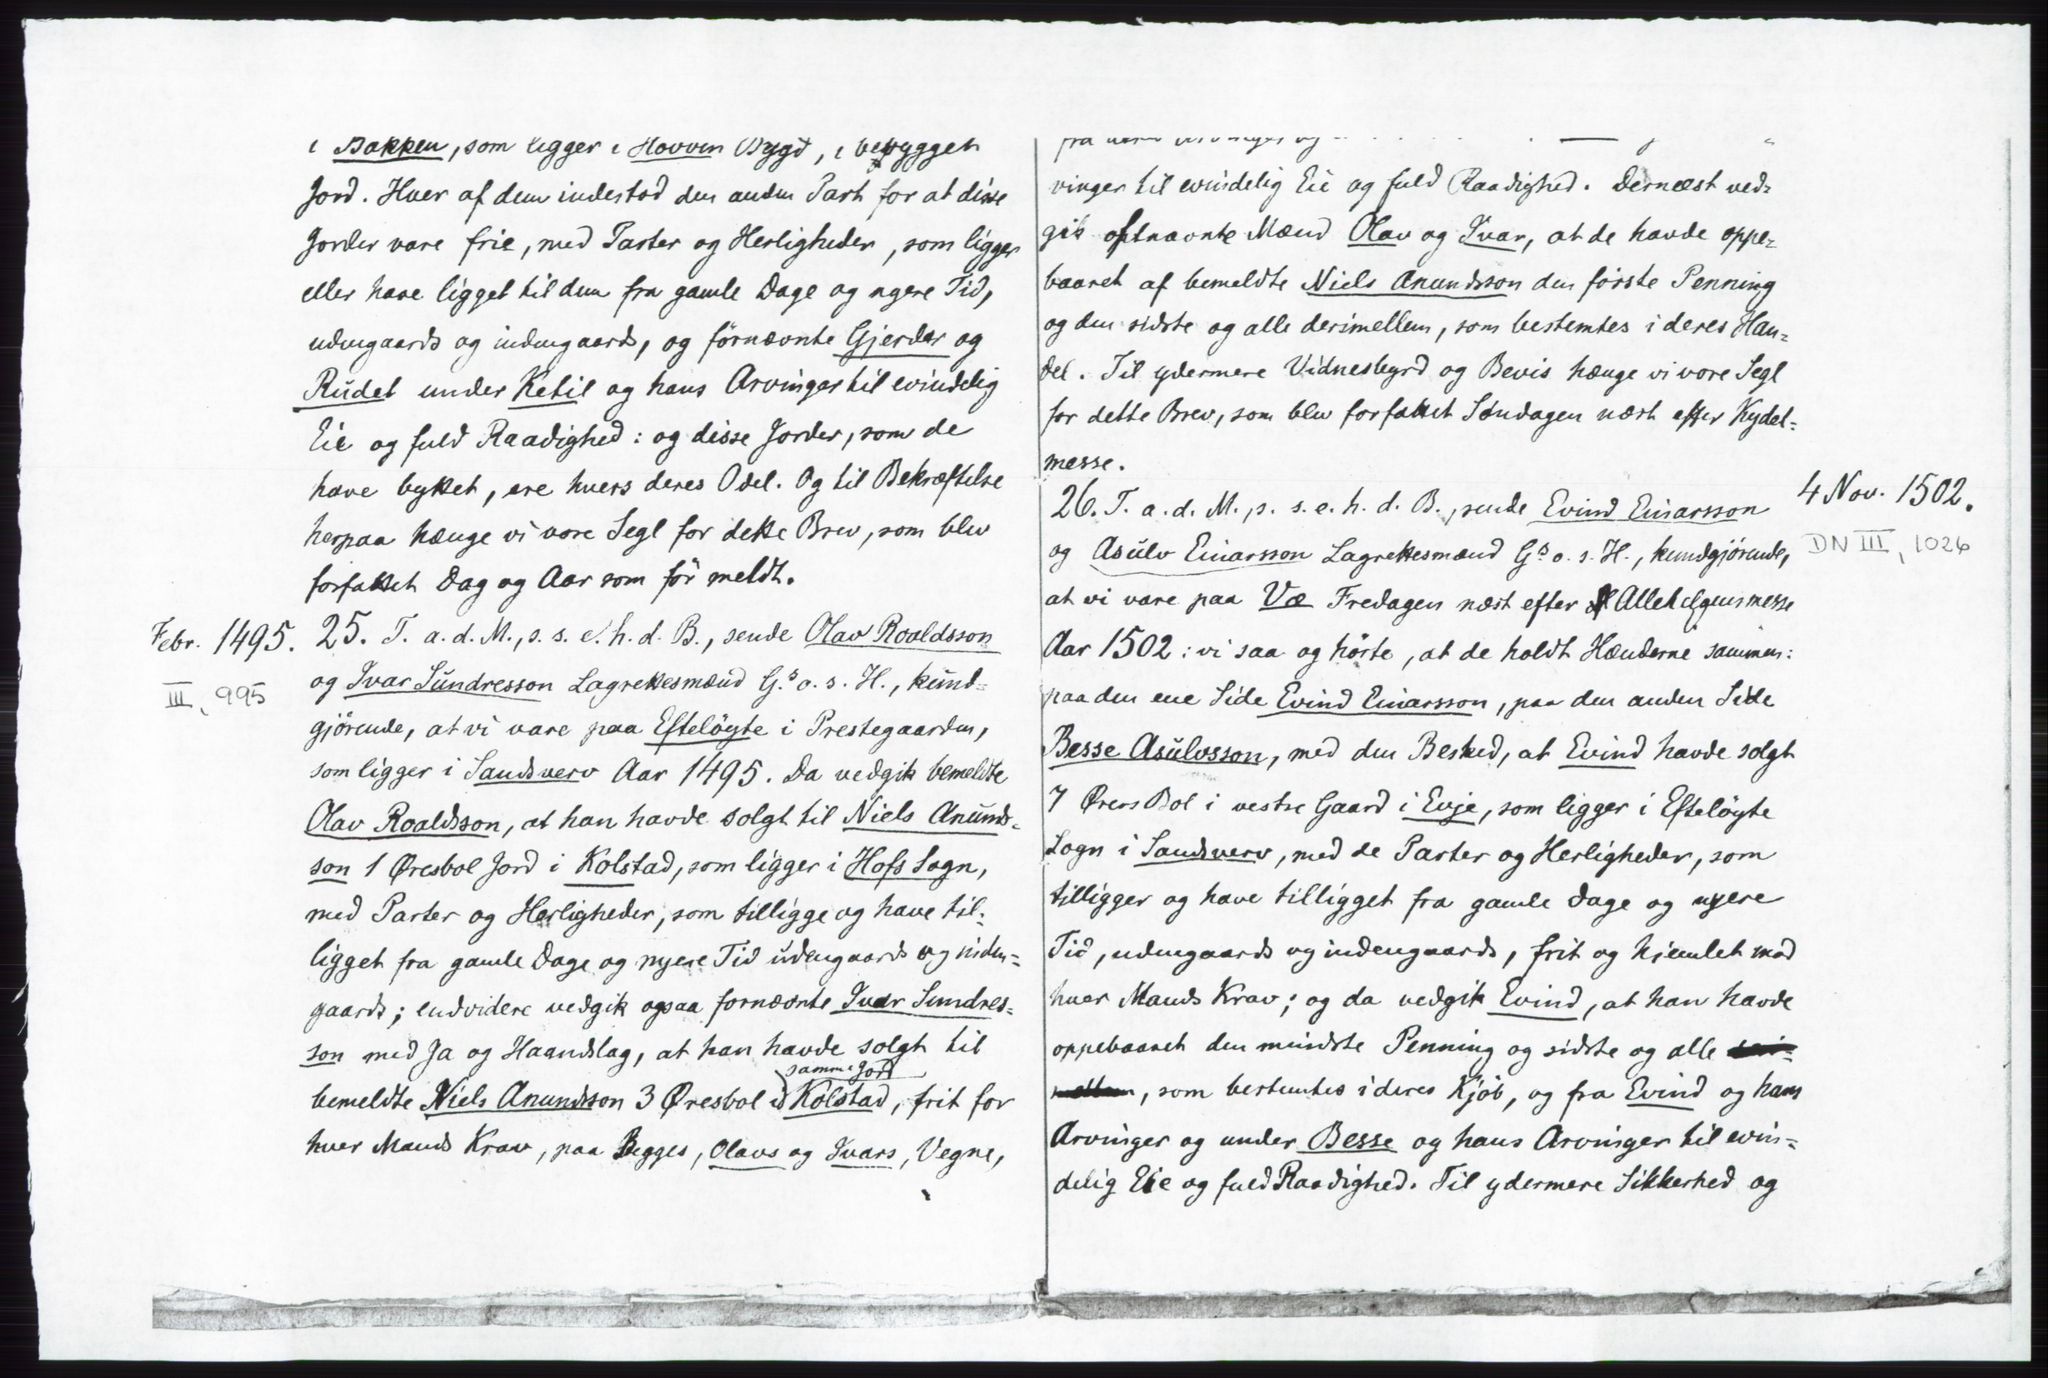 i Bakken, som ligger i Hovvin Bygd, i bebygget
Jord. Hver af dem indestod den anden Part for at disse
Jorder vare frie, med Parter og Herligheder, som ligger
eller have ligget til dem fra gamle Dage og nyere Tid,
udengaards og indengaards, og förnævnte Gjerder og
Rudet under Ketil og hans Arvinger til evindelig
Eie og fuld Raadighed: og disse Jorder, som de
have byttet, ere hvers deres Odel. Og til Bekræftelse
herpaa hænge vi vore Segl for dette Brev, som blev
forfattet Dag og Aar som för meldt.
Febr. 1495.
III, 995
25. T. a. d. M., s. s. e. h. d. B., sende Olav Roaldsson
og Ivar Sundresson Lagrettesmænd G.s o. s. H., kund-
gjörende, at vi vare paa Eftelöyte i Prestegaarden,
som ligger i Sandsverv Aar 1495. Da vedgik bemeldte
Olav Roaldsson, at han havde solgt til Niels Anunds-
son 1 Øresbol Jord i Kolstad, som ligger i Hofs Sogn,
med Parter og Herligheder, som tilligge og have til-
ligget fra gamle Dage og nyere Tid udengaards og inden-
gaards; endvidere vedgik ogsaa fornævnte Ivar Sundres-
son med Ja og Haandslag, at han havde solgt til
samme Jord
bemeldte Niels Anundsson 3 Øresbol i Kolstad, frit for
hver Mands Krav, paa Begges, Olavs og Ivars, Vegne,
fra
vinger til evindelig Eie og fuld Raadighed. Dernæst ved-
gik oftnævnte Mænd Olav og Ivar, at de havde oppe-
baaret af bemeldte Niels Anundsson den förste Penning
og den sidste og alle derimellem, som bestemtes i deres Han-
del. Til ydermere Vidnesbyrd og Bevis hænge vi vore Segl
for dette Brev, som blev forfattet Söndagen næst efter Kydel-
messe.
4 Nov. 1502.
DN III, 1026
26. T. a. d. M., s. s. e. h. d. B., sende Evind Einarsson
og Asulv Einarsson Lagrettesmænd G.s o. s. H., kundgjörende,
at vi vare paa Væ Fredagen næst efter Allehelgensmesse
Aar 1502: vi saa og hörte, at de holdt Hænderne sammen:
paa den ene Side Evind Einarsson, paa den anden Side
Besse Asulvsson, med den Besked, at Evind havde solgt
7 Örers Bol i vestre Gaard i Evje, som ligger i Eftelöyte
Sogn i Sandsverv, med de Parter og Herligheder, som
tilligger og have tilligget fra gamle Dage og nyere
Tid, udengaards og indengaards, frit og hjemlet mod
hver Mands Krav; og da vedgik Evind, at han havde
oppebaaret den mindste Penning og sidste og alle deri-
mellem, som bestemtes i deres Kjöb, og fra Evind og hans
Arvinger og under Besse og hans Arvinger til evin-
delig Eie og fuld Raadighed. Til ydermere Sikkerhed og